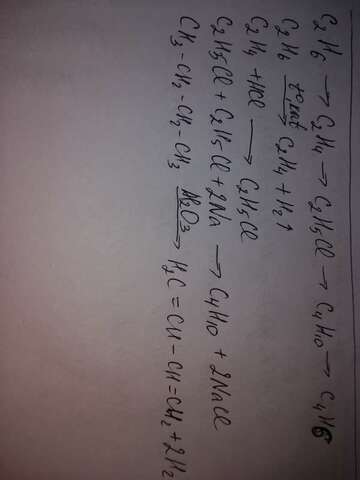 C2H6 → C2H4 → C2H5Cl → C4H10 → C4H6
C2H6 t°,kat→ C2H4 + H2↑
C2H4 + HCl → C2H5Cl
C2H5Cl + C2H5Cl + 2Na → C4H10 + 2NaCl
CH3-CH2-CH2-CH3 Al2O3→ H2C=CH-CH=CH2+2H2